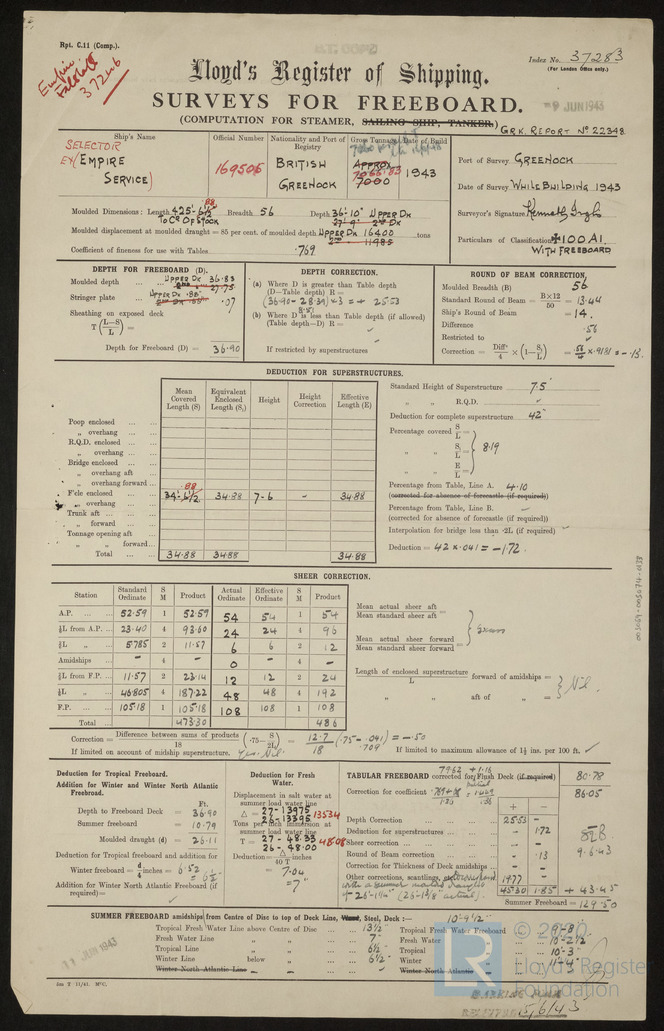 Rpt. C.11 (Comp.).
Empire
37246
Index No. 37283
(For London Office only.)
Lloyd's Register of Shipping.
9 JUN 1943
SURVEYS FOR FREEBOARD.
(COMPUTATION FOR STEAMER, SAILING SHIP, TANKER.)
GRK. REPORT No 22348
Ship's Name
Official Number
Nationality and Port of Registry
Gross Tonnage
Date of Build
SELECTOR
EX (EMPIRE SERVICE)
169505
BRITISH
GREENOCK
APPROX
7000
1943
Port of Survey GREENOCK
Date of Survey WHILE BUILDING 1943
Surveyor's Signature
Particulars of Classification ✠100A1.
WITH FREEBOARD
Moulded Dimensions: Length 425'-6½" Breadth 56 Depth 36'-10" UPPER DK
TO CR OF STOCK 27'-9" 2ND DK
Moulded displacement at moulded draught = 85 per cent. of moulded depth UPPER DK 16400 tons
2ND 11985
Coefficient of fineness for use with Tables .769
DEPTH FOR FREEBOARD (D).
Moulded depth ... UPPER DK 36.83
27.75
Stringer plate ... UPPER DK .88" .07
Sheathing on exposed deck
T (L—S / L) =
Depth for Freeboard (D) = 36.90
DEPTH CORRECTION.
(a) Where D is greater than Table depth
(D—Table depth) R =
(36.90 - 28.39) × 3 = + 25.53
8.51
(b) Where D is less than Table depth (if allowed)
(Table depth—D) R =
If restricted by superstructures
ROUND OF BEAM CORRECTION.
Moulded Breadth (B) 56
Standard Round of Beam = B×12 / 50 = 13.44
Ship's Round of Beam = 14.
Difference .56
Restricted to
Correction = Diffce / 4 × (1 — S1 / L) = .56 / 4 × .9181 = -.13.
DEDUCTION FOR SUPERSTRUCTURES.
Mean Covered Length (S)
Equivalent Enclosed Length (S1)
Height
Height Correction
Effective Length (E)
Poop enclosed
„ overhang
R.Q.D. enclosed
„ overhang
Bridge enclosed
„ overhang aft
„ overhang forward
F'cle enclosed 34'-6½" .88 34.88 7-6 - 34.88
„ overhang
Trunk aft
„ forward
Tonnage opening aft
„ „ forward
Total 34.88 34.88 34.88
Standard Height of Superstructure 7.5'
„ „ R.Q.D.
Deduction for complete superstructure 42"
Percentage covered S / L =
„ „ S1 / L = 8.19
„ „ E / L =
Percentage from Table, Line A. 4.10
(corrected for absence of forecastle (if required))
Percentage from Table, Line B.
(corrected for absence of forecastle (if required))
Interpolation for bridge less than ·2L (if required)
Deduction = 42 × .041 = -1.72.
SHEER CORRECTION.
Station
Standard Ordinate
S M
Product
Actual Ordinate
Effective Ordinate
S M
Product
A.P. 52.59 1 52.59 54 54 1 54
⅙L from A.P. 23.40 4 93.60 24 24 4 96
⅓L „ 5.785 2 11.57 6 6 2 12
Amidships - 4 - 0 - 4 -
⅓L from F.P. 11.57 2 23.14 12 12 2 24
⅙L „ 46.805 4 187.22 48 48 4 192
F.P. 105.18 1 105.18 108 108 1 108
Total 473.30 486
Mean actual sheer aft
Mean standard sheer aft =
Mean actual sheer forward
Mean standard sheer forward =
Length of enclosed superstructure / L forward of amidships =
„ „ aft of „ = Nil.
Correction = Difference between sums of products / 18 (·75— S / 2L) = 12.7 / 18 (.75 - .041) = -.50
.709
If limited on account of midship superstructure. Nil.
If limited to maximum allowance of 1½ ins. per 100 ft.
Deduction for Tropical Freeboard.
Addition for Winter and Winter North Atlantic Freeboard.
Ft.
Depth to Freeboard Deck = 36.90
Summer freeboard = 10.79
Moulded draught (d) = 26.11
Deduction for Tropical freeboard and addition for
Winter freeboard = d / 4 inches = 6.52
= 6½"
Addition for Winter North Atlantic Freeboard (if required) =
Deduction for Fresh Water.
Displacement in salt water at summer load water line
Δ = 27 - 13975
26 - 13395 13534
Tons per inch immersion at summer load water line
T = 27 - 48.33
26 - 48.00 48.08
Deduction = Δ / 40 T inches
= 7.04
= 7"
TABULAR FREEBOARD corrected for Flush Deck (if required) 80.78
79.62 + 1.16
Correction for coefficient 86.05
+ -
Depth Correction 25.53 -
Deduction for superstructures - 1.72
Sheer correction -
Round of Beam correction - .13
Correction for Thickness of Deck amidships - -
Other corrections, scantlings, 19.77
45.30 1.85 + 43.45
Summer Freeboard = 129.50
9.6.43
SUMMER FREEBOARD amidships from Centre of Disc to top of Deck Line, Wood, Steel, Deck:— 10'-9½"
Tropical Fresh Water Line above Centre of Disc 13½"
Fresh Water Line „ „ 7"
Tropical Line „ „ 6½"
Winter Line below „ 6½"
Winter North Atlantic Line „ -
Tropical Fresh Water Freeboard 9'-8"
Fresh Water „ 10'-2½"
Tropical „ 10'-3"
Winter „ 11'-4"
Winter North Atlantic „ -
11 JUN 1943
15/6/43
003069-003074-0133
© 2020
LR
Lloyd's Register
Foundation